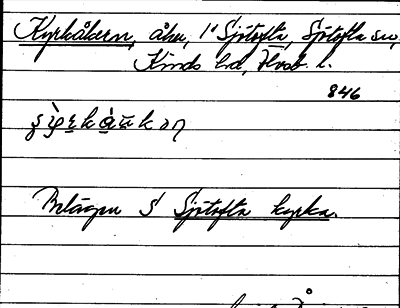 Kyrkåkern, åker, 1' Sjötofta, Sjötofta sn,
Kinds hd, Älvsb. l.
846
Belägen S Sjötofta kyrka.